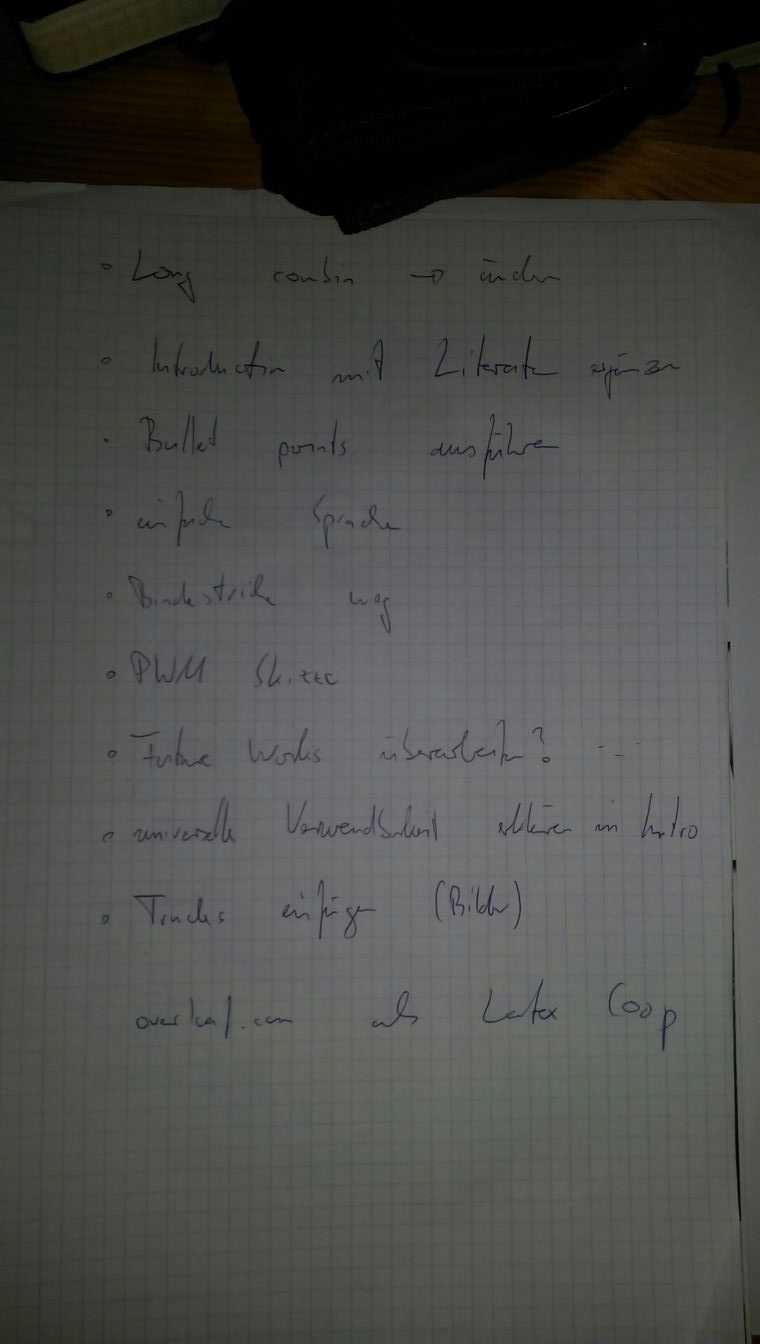 Long combin → ändern
Introduction mit Literatur ergänzen
Bullet points ausführen
einfache Sprache
Bindestriche weg
PWM Skizze
Future Works überarbeiten? ---
universelle Verwendbarkeit erklären in Intro
Trucks einfügen (Bilder)
overleaf.com als Latex Coop